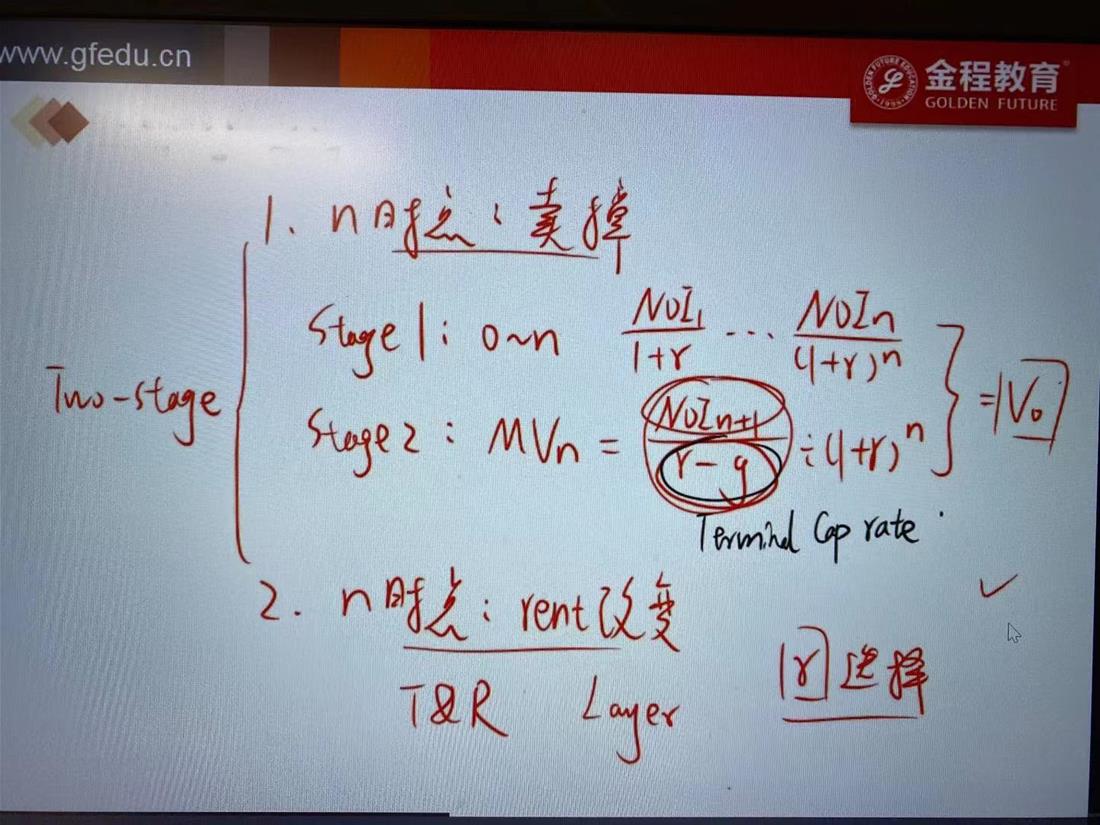 www.gfedu.cn
金程教育
GOLDEN FUTURE
1. n时点：卖掉
Stage 1: 0~n NOI₁/1+r ... NOIn/(1+r)ⁿ
Two-stage
Stage 2: MVn = NOIn+1/r-g ÷(1+r)ⁿ } = V₀
Terminal Cap rate
2. n时点：rent改变
T&R Layer r选择